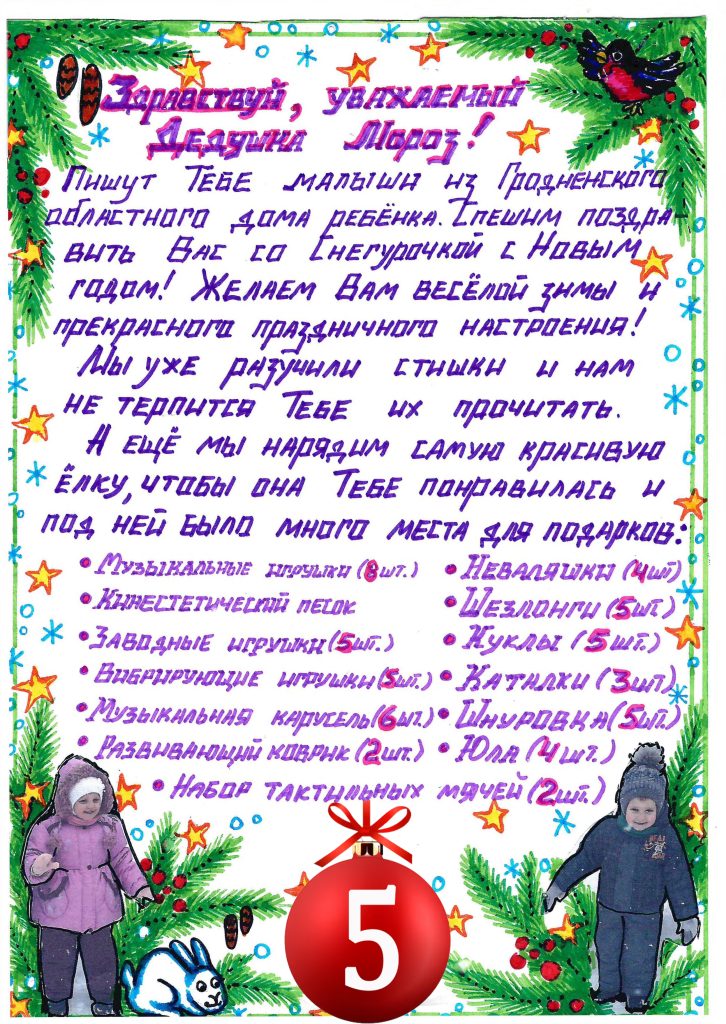 Здравствуй, уважаемый
Дедушка Мороз!
Пишут Тебе малыши из Гродненского
областного дома ребёнка. Спешим поздра-
вить Вас со Снегурочкой с Новым
годом! Желаем Вам весёлой зимы и
прекрасного праздничного настроения!
Мы уже разучили стишки и нам
не терпится Тебе их прочитать.
А ещё мы нарядим самую красивую
ёлку, чтобы она Тебе понравилась и
под ней было много места для подарков:
• Музыкальные игрушки (8 шт.)
• Кинестетический песок
• Заводные игрушки (5 шт.)
• Вибрирующие игрушки (5 шт.)
• Музыкальная карусель (6 шт.)
• Развивающий коврик (2 шт.)
• Неваляшки (4 шт)
• Шезлонги (5 шт.)
• Куклы (5 шт.)
• Каталки (3 шт.)
• Шнуровка (5 шт.)
• Юла (4 шт.)
• Набор тактильных мячей (2 шт.)
5